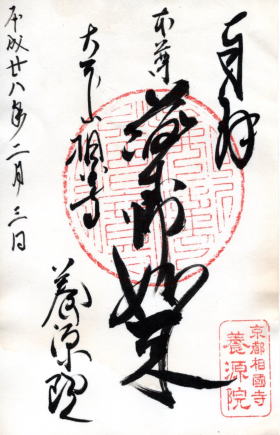 奉拝
本尊
薬師如来
大本山相国寺
養源院
平成廿八年二月三日
京都相國寺
養源院